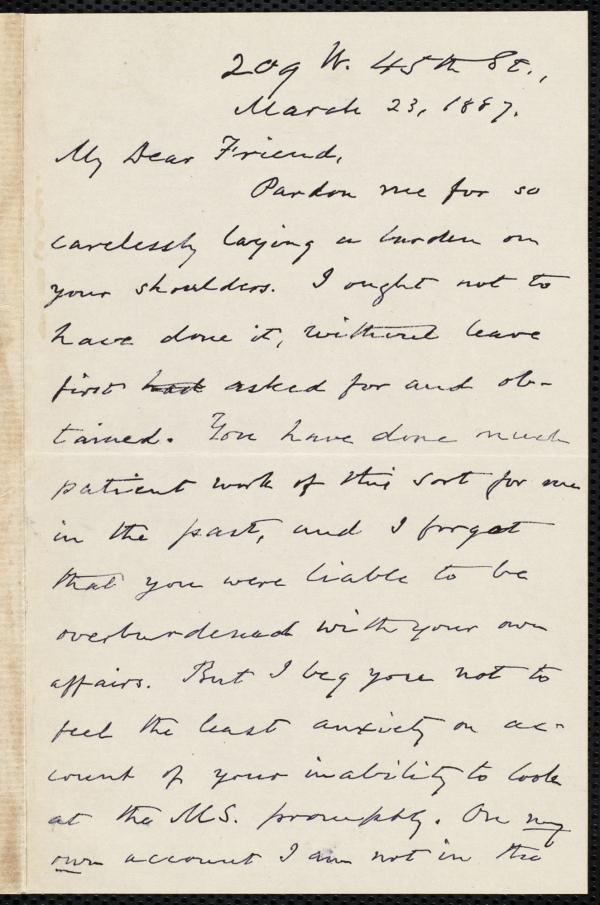 209 W. 45th St.,
March 23, 1887.
My Dear Friend,
Pardon me for so
carelessly laying a burden on
your shoulders. I ought not to
have done it, without leave
first had asked for and ob-
tained. You have done much
patient work of this sort for me
in the past, and I forgot
that you were liable to be
overburdened with your own
affairs. But I beg you not to
feel the least anxiety on ac-
count of your inability to look
at the MS. promptly. On my
own account I am not in the